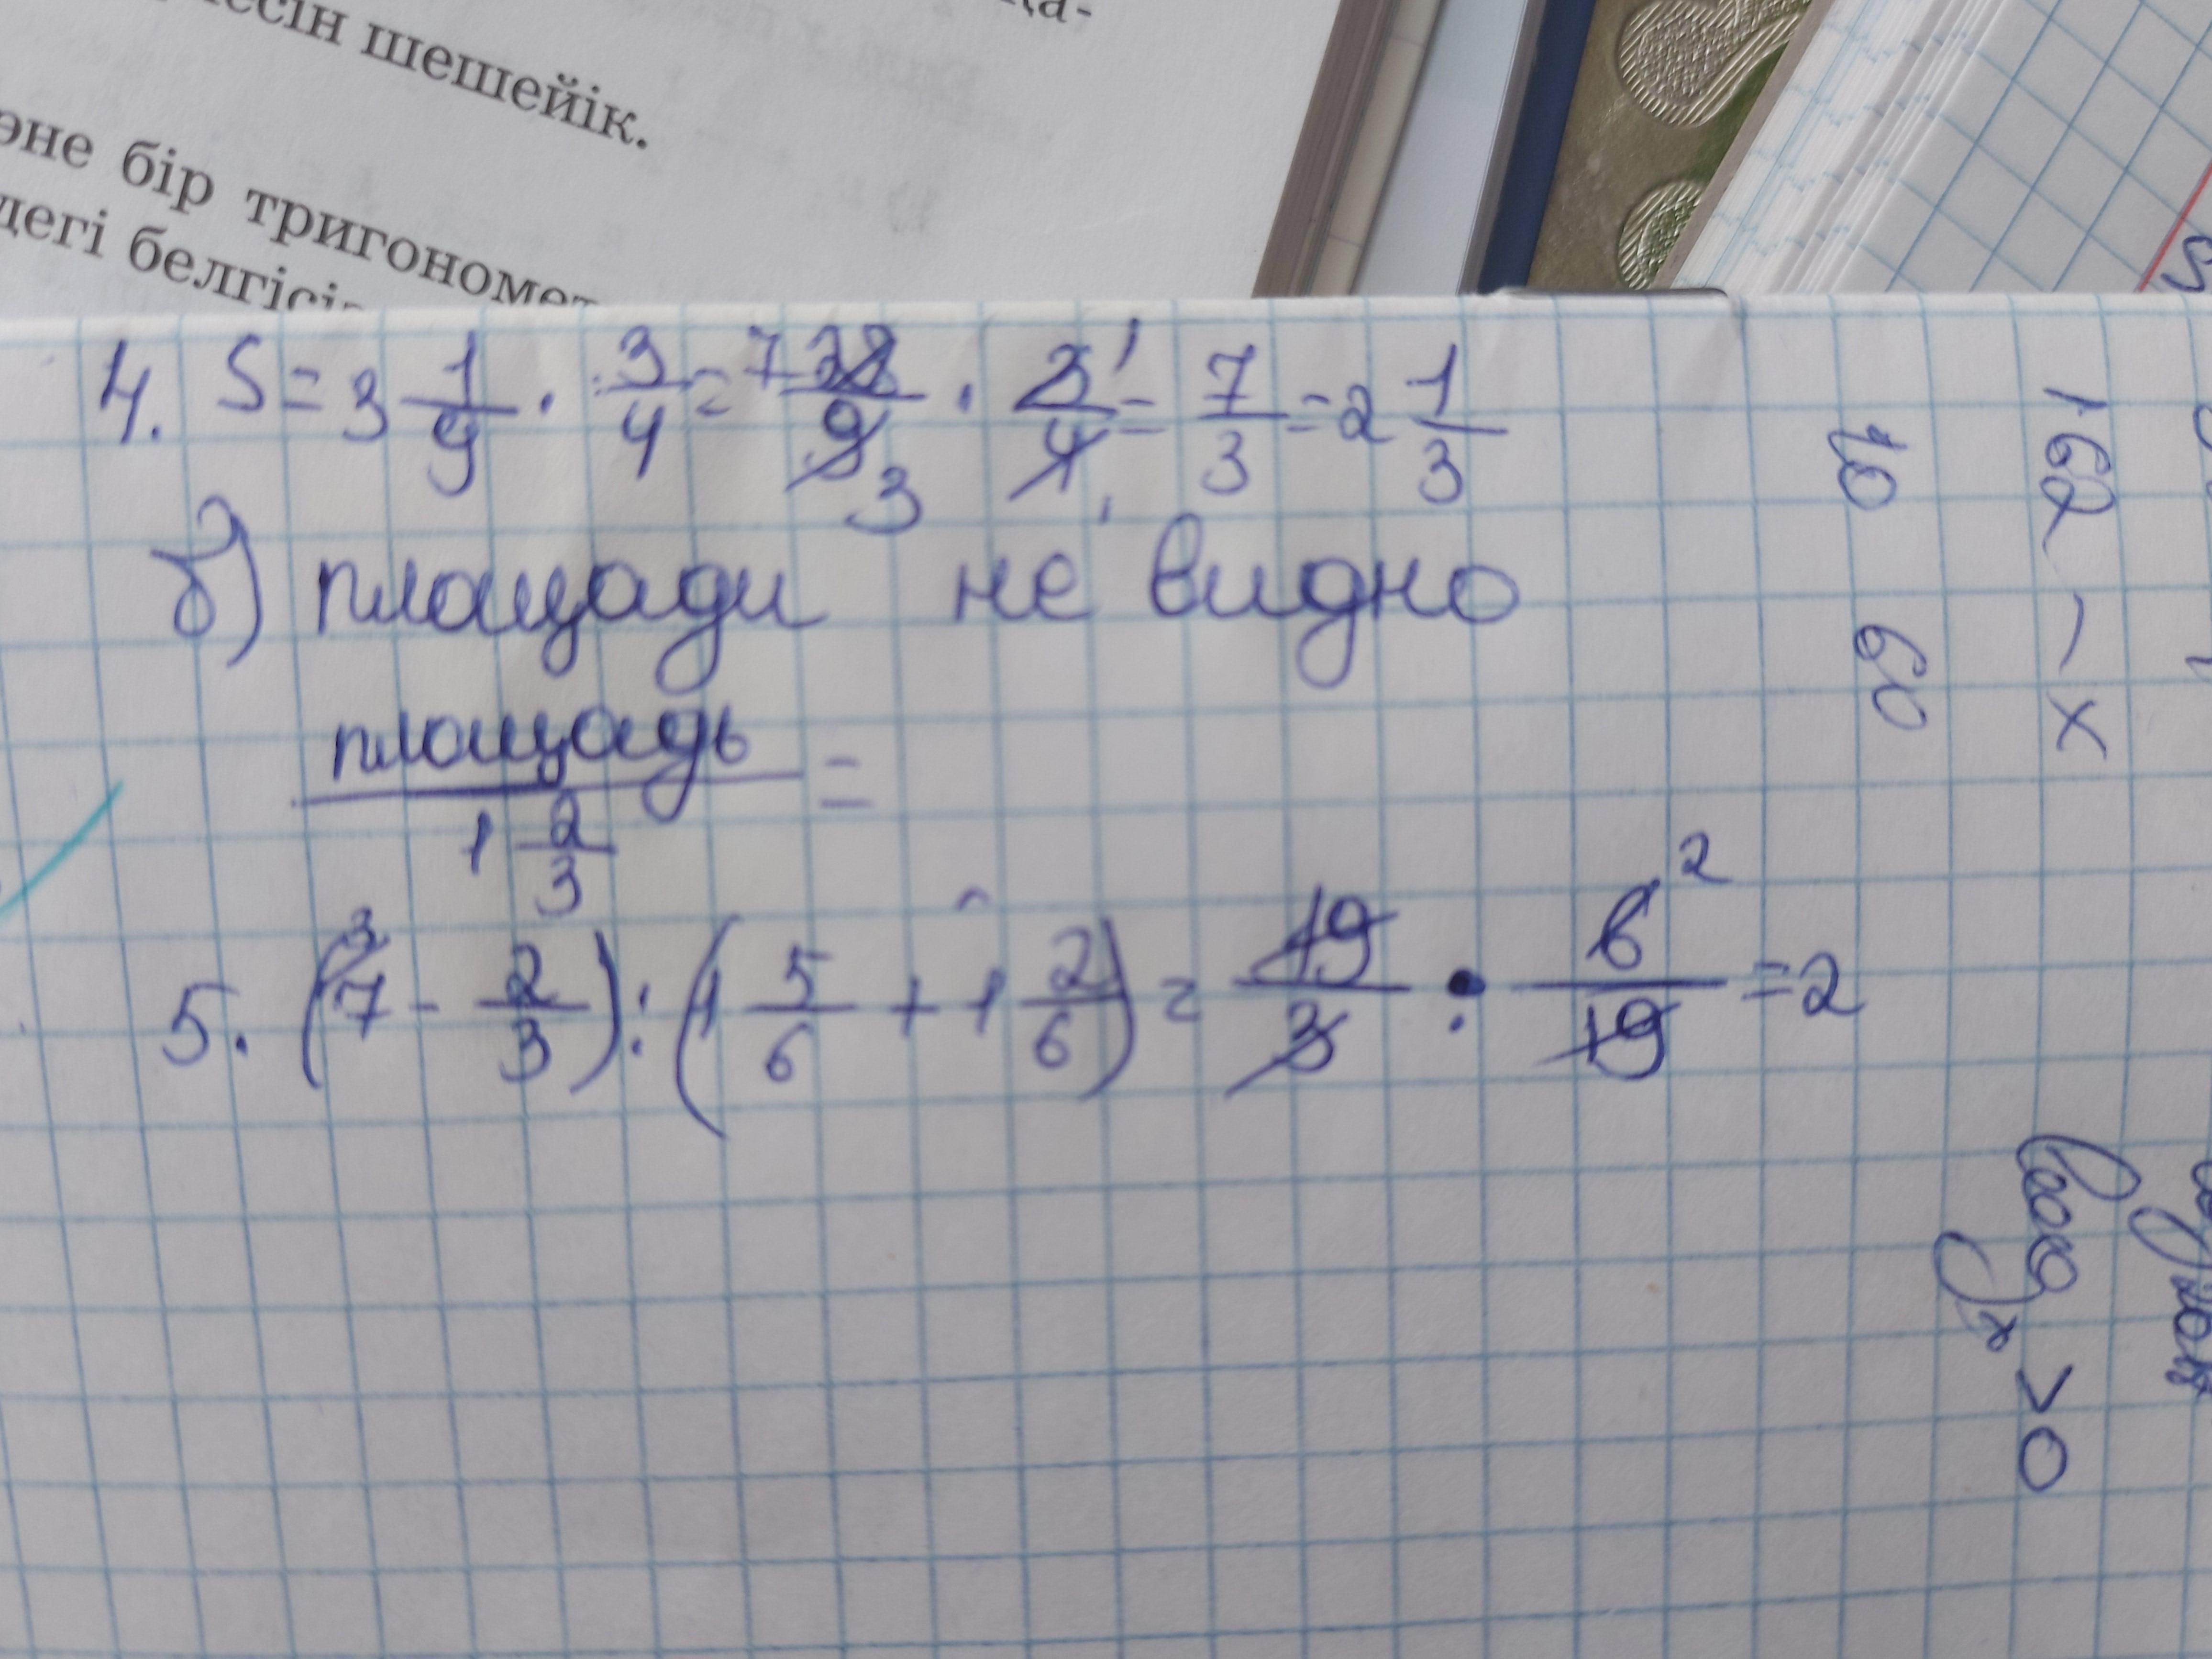 есін шешейік.
әне бір тригономет
дегі белгісіз
4. S = 3 1/9 · 3/4 = 7 28/9 3 · 3 1/4 1 = 7/3 = 2 1/3
б) площади не видно
площадь / 1 2/3 =
5. (7 3 - 2/3) : (1 5/6 + 1 2/6) = 19/3 · 6 2/19 = 2
162 - x
60
log x > 0